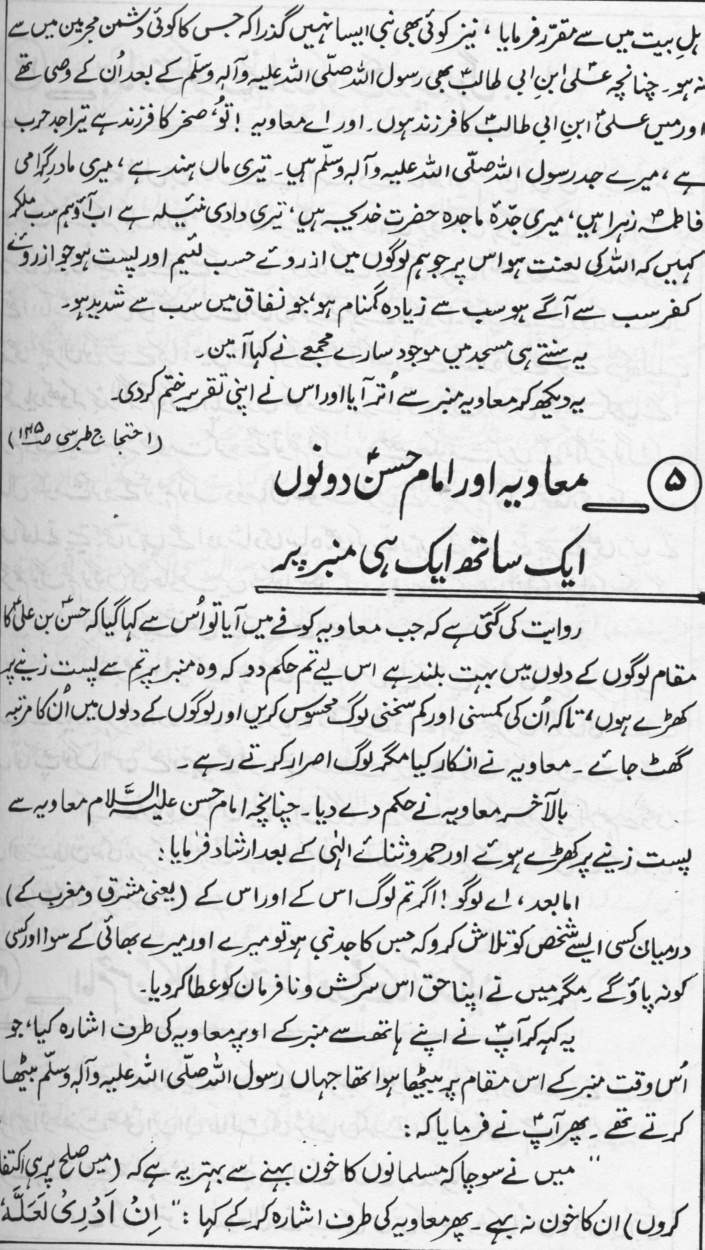 ہلِ بیت میں سے مقرر فرمایا ، نیز کوئی بھی نبی ایسا نہیں گذرا کہ جس کا کوئی دشمن مجرمین میں سے
نہ ہو۔ چنانچہ علیؑ ابن ابی طالبؑ بھی رسول اللہ صلّی اللہ علیہ وآلہ وسلّم کے بعد اُن کے وصی تھے
اور میں علیؑ ابنِ ابی طالبؑ کا فرزند ہوں۔ اور اے معاویہ ! تُو، صخر کا فرزند ہے تیرا جد حرب
ہے ، میرے جد رسول اللہ صلّی اللہ علیہ وآلہ وسلّم ہیں۔ تیری ماں ہند ہے ، میری مادرِ گرامی
فاطمہؑ زہرا ہیں ، میری جدّہ ماجدہ حضرت خدیجہ ہیں ، تیری دادی نثیلہ ہے اب آؤ ہم سب ملکر
کہیں کہ اللہ کی لعنت ہو اس پر جو ہم لوگوں میں ازروئے حسب لئیم اور پست ہو جو ازروئے
کفر سب سے آگے ہو سب سے زیادہ گمنام ہو ، جو نفاق میں سب سے شدید ہو۔
یہ سنتے ہی مسجد میں موجود سارے مجمعے نے کہا آمین۔
یہ دیکھ کر معاویہ منبر سے اُتر آیا اور اس نے اپنی تقریر ختم کر دی۔
(احتجاج طبرسی صـ۱۴۵)
۵ معاویہ اور امام حسنؑ دونوں
ایک ساتھ ایک ہی منبر پر
روایت کی گئی ہے کہ جب معاویہ کوفے میں آیا تو اُس سے کہا گیا کہ حسنؑ بن علیؑ کا
مقام لوگوں کے دلوں میں بہت بلند ہے اس لیے تم حکم دو کہ وہ منبر پر تم سے پست زینے پر
کھڑے ہوں ، تاکہ اُن کی کمسنی اور کم سخنی لوگ محسوس کریں اور لوگوں کے دلوں میں اُن کا مرتبہ
گھٹ جائے ۔ معاویہ نے انکار کیا مگر لوگ اصرار کرتے رہے۔
بالآخر معاویہ نے حکم دے دیا۔ چنانچہ امام حسن علیہ السّلام معاویہ سے
پست زینے پر کھڑے ہوئے اور حمد و ثنائے الٰہی کے بعد ارشاد فرمایا :
اما بعد ، اے لوگو ! اگر تم لوگ اس کے اور اس کے (یعنی مشرق و مغرب کے)
درمیان کسی ایسے شخص کو تلاش کرو کہ جس کا جد نبی ہو تو میرے اور میرے بھائی کے سوا اور کسی
کو نہ پاؤ گے ۔ مگر میں نے اپنا حق اس سرکش و نافرمان کو عطا کر دیا۔
یہ کہہ کر آپؑ نے اپنے ہاتھ سے منبر کے اوپر معاویہ کی طرف اشارہ کیا ، جو
اُس وقت منبر کے اس مقام پر بیٹھا ہوا تھا جہاں رسول اللہ صلّی اللہ علیہ وآلہ وسلّم بیٹھا
کرتے تھے ۔ پھر آپؑ نے فرمایا کہ :
" میں نے سوچا کہ مسلمانوں کا خون بہنے سے بہتر یہ ہے کہ (میں صلح پر ہی اکتفا
کروں) ان کا خون نہ بہے ۔ پھر معاویہ کی طرف اشارہ کرکے کہا : " اِنْ اَدْرِیْ لَعَلَّہٗ